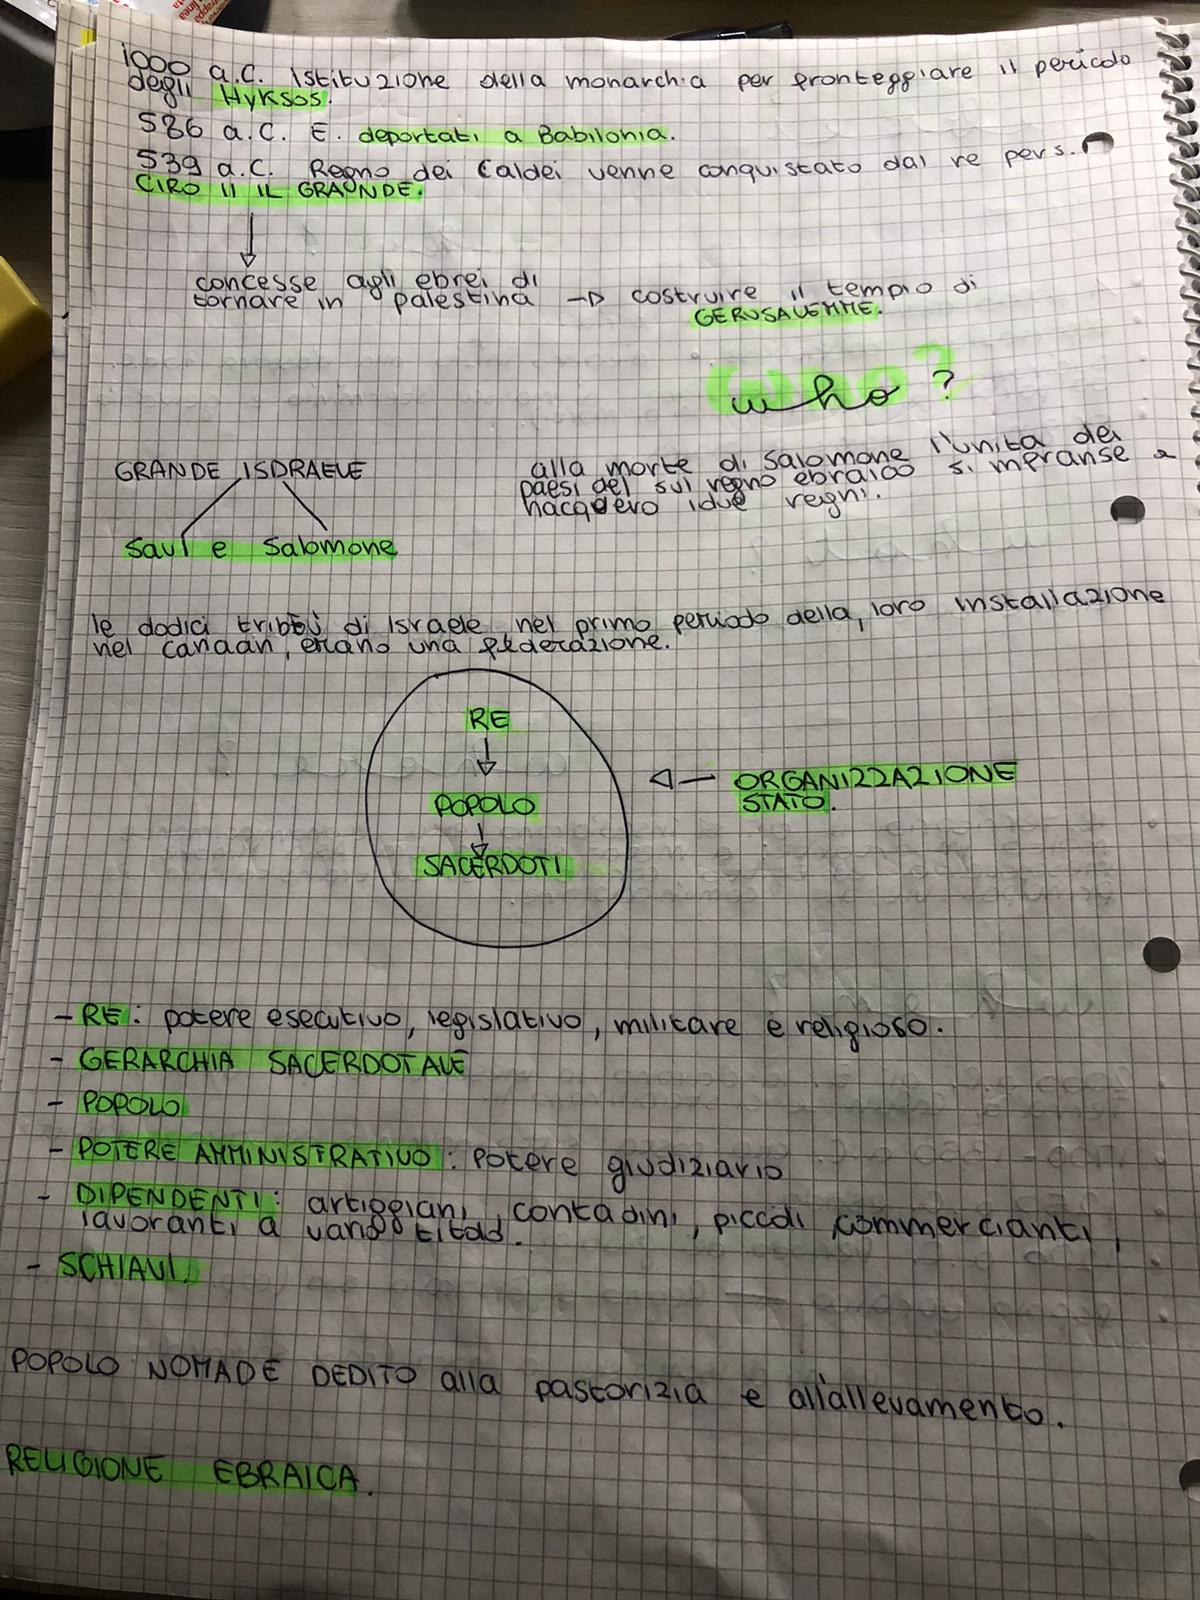 1000 a.C. Istituzione della monarchia per fronteggiare il pericolo
degli Hyksos.
586 a.C. E. deportati a Babilonia.
539 a.C. Regno dei Caldei venne conquistato dal re pers.
CIRO II IL GRAUNDE.
concesse agli ebrei di
tornare in palestina → costruire il tempio di
GERUSALEMME.
who?
GRANDE ISDRAELE
alla morte di Salomone l'unita dei
paesi del sul regno ebraico si impranse e
nacquero i due regni.
Saul e Salomone
le dodici tribù di Israele nel primo periodo della loro installazione
nel canaan, erano una federazione.
RE
POPOLO
SACERDOTI
ORGANIZZAZIONE
STATO.
- RE: potere esecutivo, legislativo, militare e religioso.
- GERARCHIA SACERDOTALE
- POPOLO
- POTERE AMMINISTRATIVO: potere giudiziario
- DIPENDENTI: artiggiani, contadini, piccoli commercianti,
lavoranti a vario titolo.
- SCHIAVI.
POPOLO NOMADE DEDITO alla pastorizia e all'allevamento.
RELIGIONE EBRAICA.